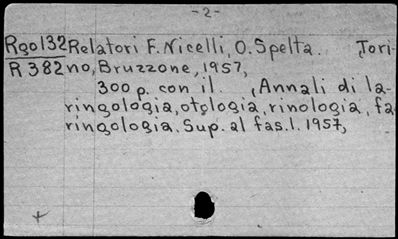 -2-
Rgo132 Relatori F. Nicelli, O. Spelta. Tori-
R 382 no, Bruzzone, 1957,
300 p. con il. , Annali di la-
ringologia, otologia, rinologia, fa-
ringologia. Sup. al fas. 1. 1957,